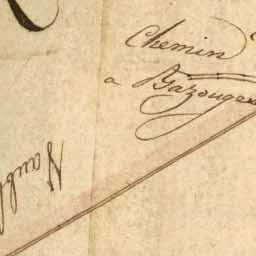 Chemin
a Bazouges